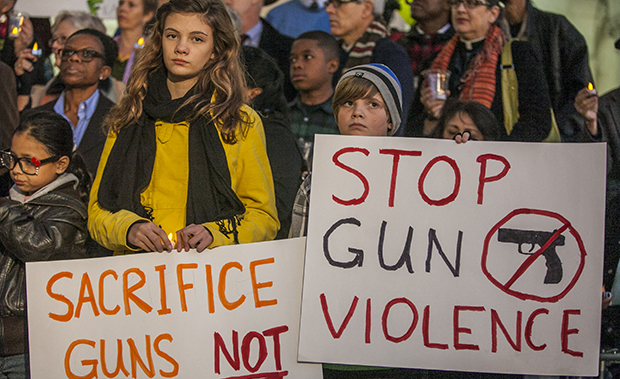 SACRIFICE
GUNS NOT
STOP
GUN
VIOLENCE